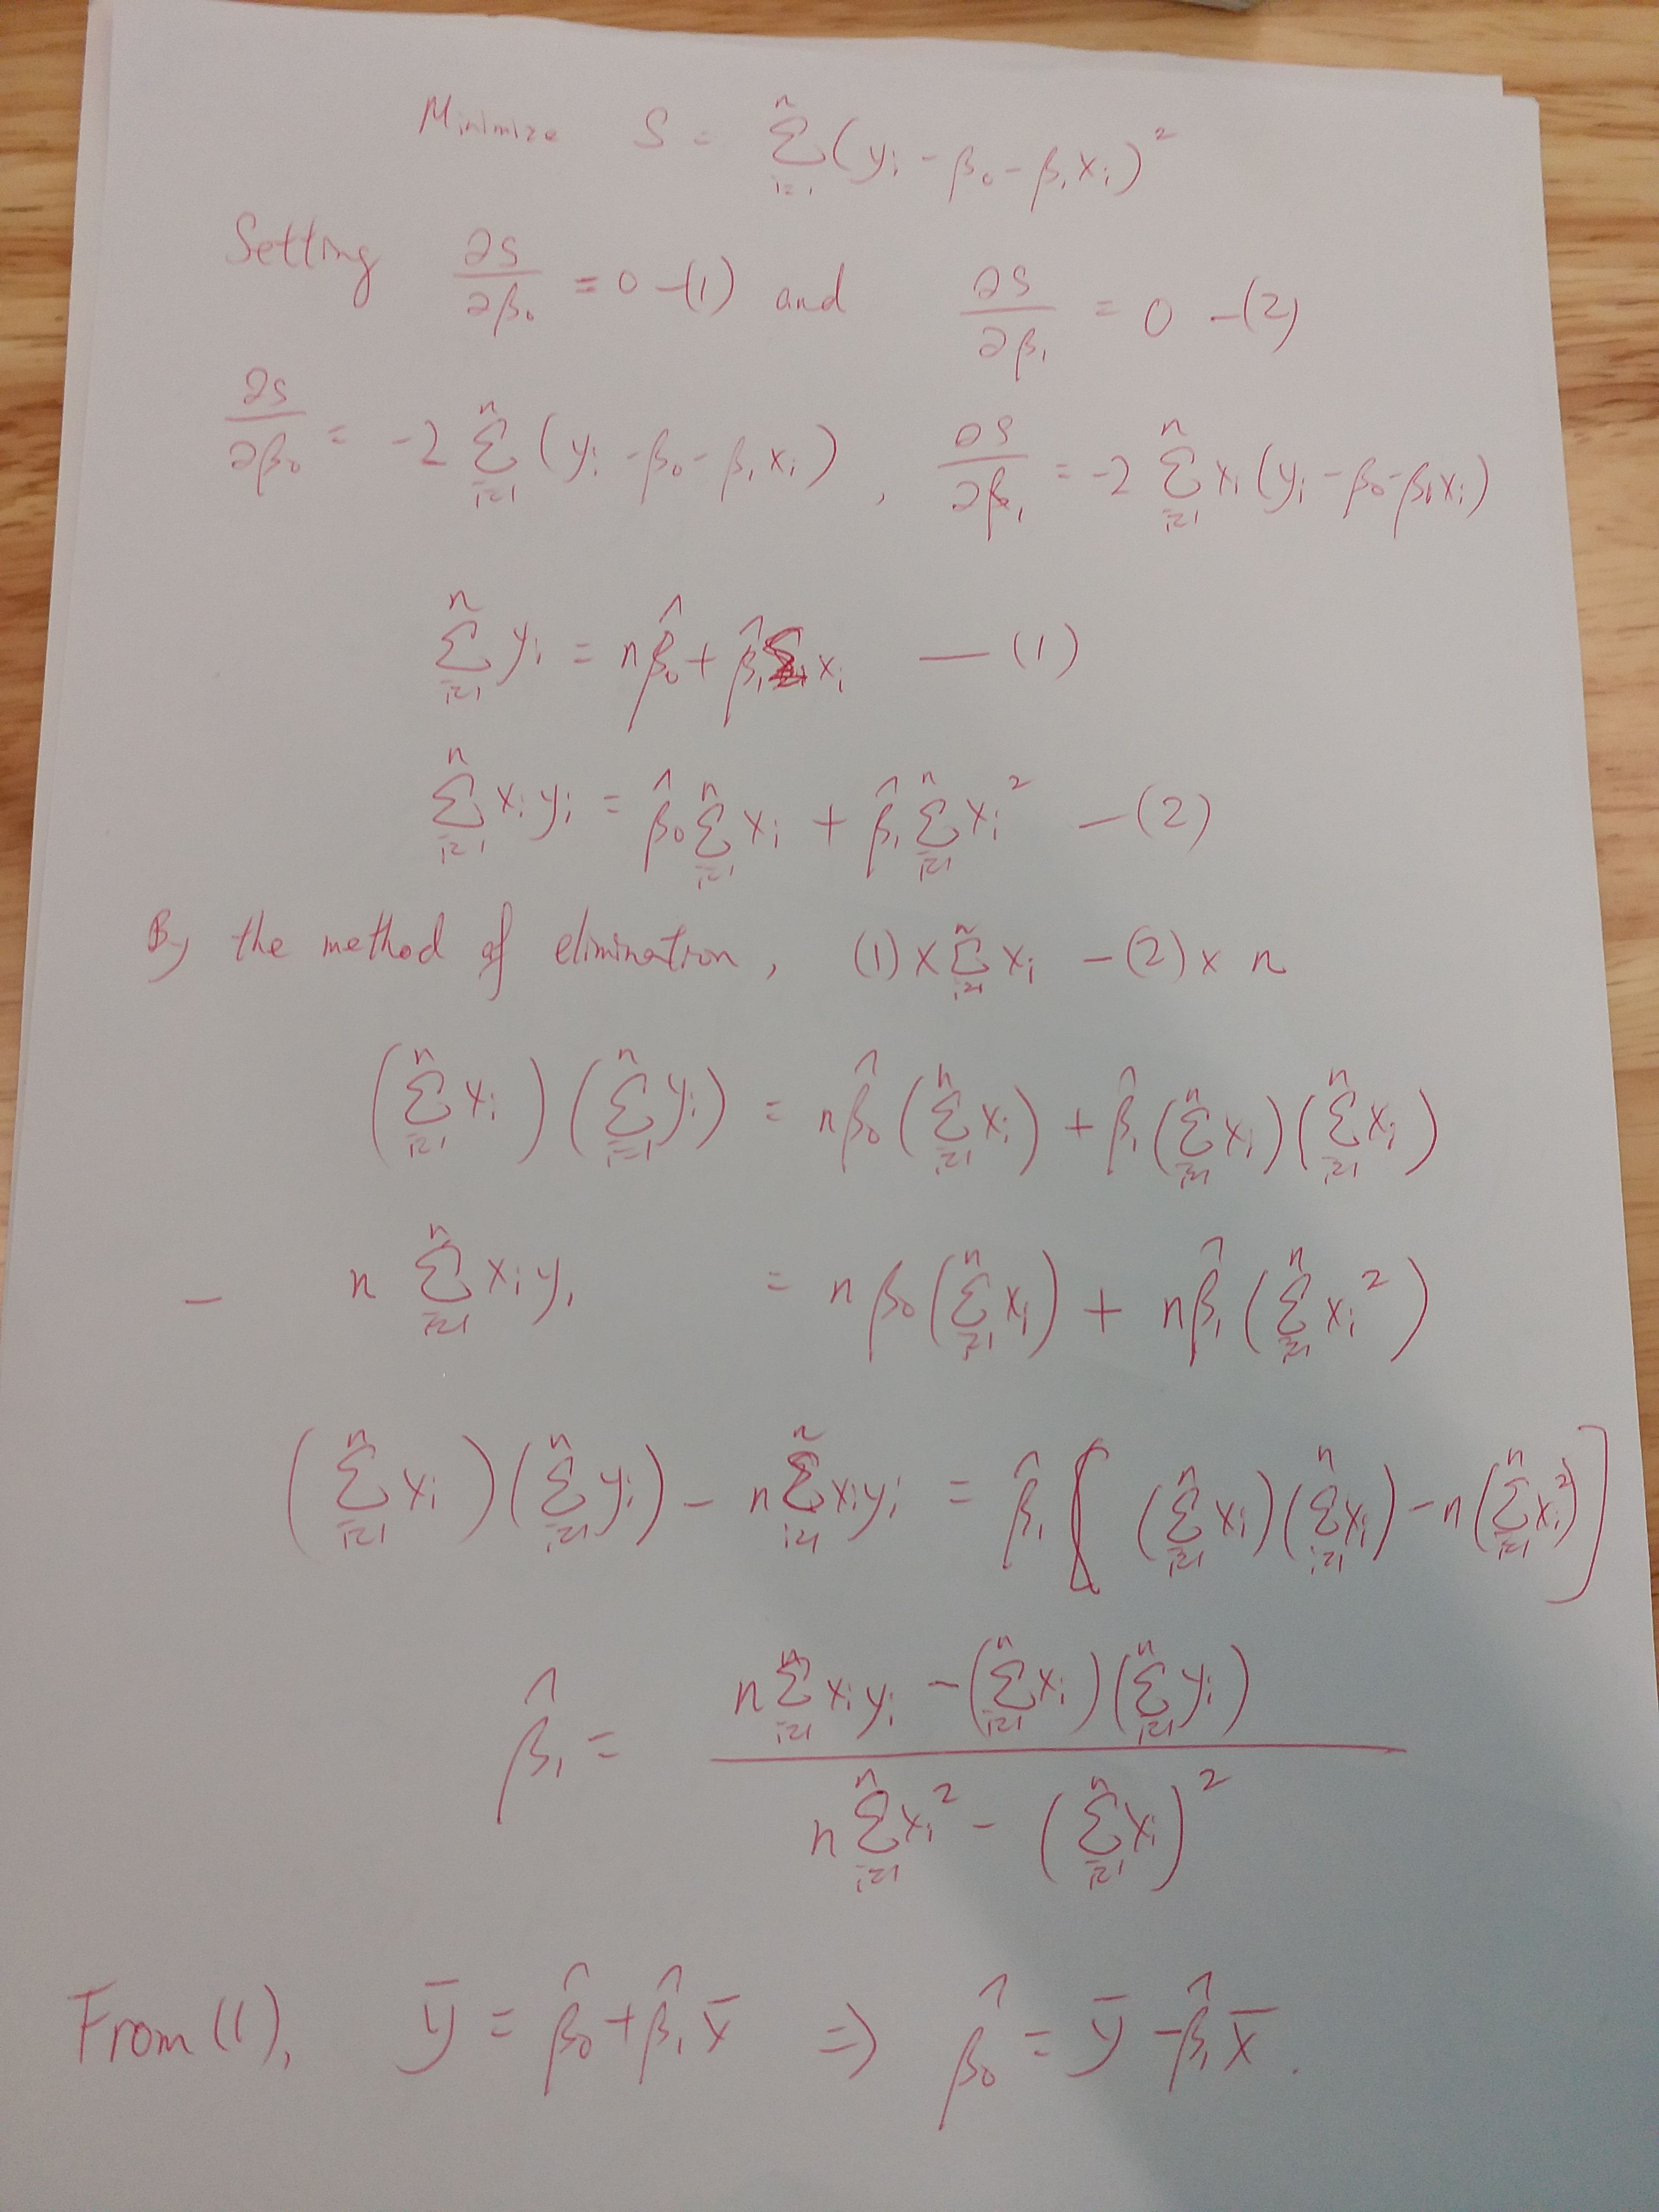 Minimize S = \sum_{i=1}^{n} (y_i - β_0 - β_1 x_i)^2
Setting \frac{∂S}{∂β_0} = 0 —(1) and \frac{∂S}{∂β_1} = 0 —(2)
\frac{∂S}{∂β_0} = -2 \sum_{i=1}^{n} (y_i - β_0 - β_1 x_i) , \frac{∂S}{∂β_1} = -2 \sum_{i=1}^{n} x_i (y_i - β_0 - β_1 x_i)
\sum_{i=1}^{n} y_i = n\hat{β}_0 + \hat{β}_1 \sum x_i —(1)
\sum_{i=1}^{n} x_i y_i = \hat{β}_0 \sum_{i=1}^{n} x_i + \hat{β}_1 \sum_{i=1}^{n} x_i^2 —(2)
By the method of elimination, (1) × \sum_{i=1}^{n} x_i - (2) × n
(\sum_{i=1}^{n} x_i)(\sum_{i=1}^{n} y_i) = n\hat{β}_0 (\sum_{i=1}^{n} x_i) + \hat{β}_1 (\sum_{i=1}^{n} x_i)(\sum_{i=1}^{n} x_i)
- n \sum_{i=1}^{n} x_i y_i = n β_0 (\sum_{i=1}^{n} x_i) + n\hat{β}_1 (\sum_{i=1}^{n} x_i^2)
(\sum_{i=1}^{n} x_i)(\sum_{i=1}^{n} y_i) - n \sum_{i=1}^{n} x_i y_i = \hat{β}_1 [ (\sum_{i=1}^{n} x_i)(\sum_{i=1}^{n} x_i) - n (\sum_{i=1}^{n} x_i^2) ]
\hat{β}_1 = \frac{n \sum_{i=1}^{n} x_i y_i - (\sum_{i=1}^{n} x_i)(\sum_{i=1}^{n} y_i)}{n \sum_{i=1}^{n} x_i^2 - (\sum_{i=1}^{n} x_i)^2}
From (1), \bar{y} = \hat{β}_0 + \hat{β}_1 \bar{x} ⇒ \hat{β}_0 = \bar{y} - \hat{β}_1 \bar{x}.